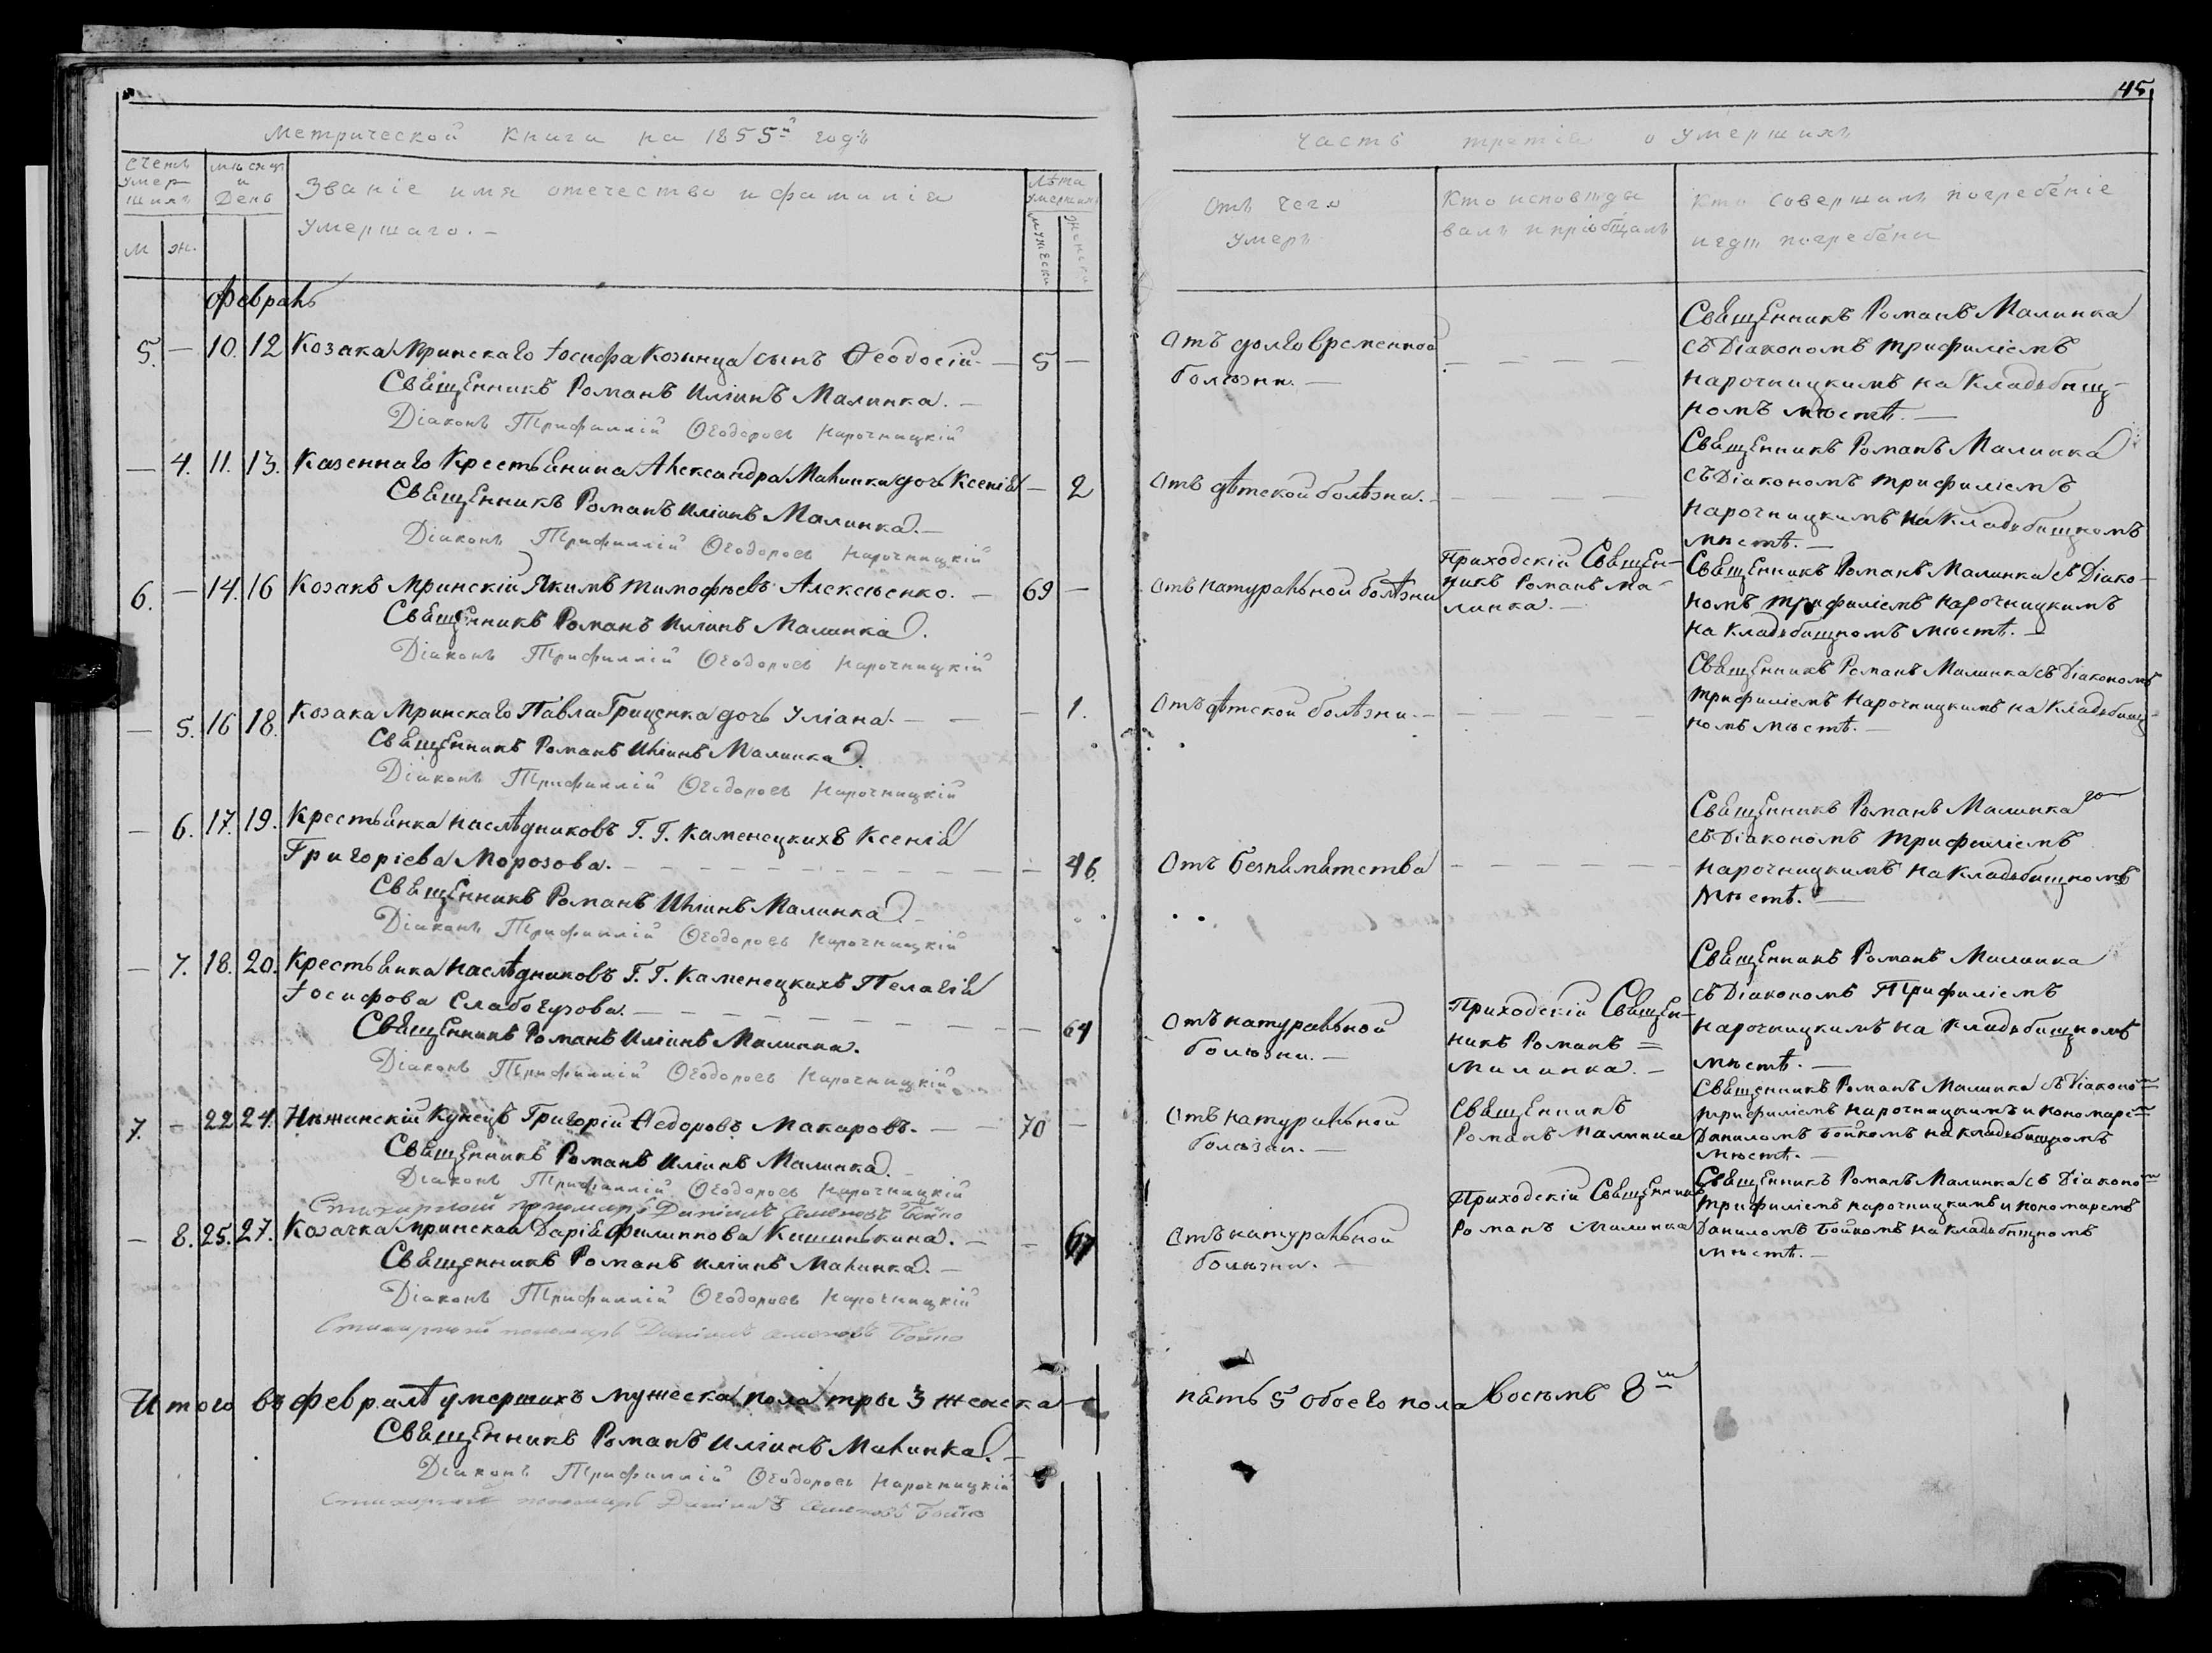 45
Метрической Книги на 1855й годъ
Часть третія о умершихъ
Счетъ умер шихъ
мѣсяцъ и День
Званіе имя отечество и фамилія
умершаго. –
Лѣта умершихъ
м жен.
мужески женски
Отъ чего
умеръ
Кто исповѣды
валъ и пріобщалъ
Кто Совершалъ погребеніе
и гдѣ погребены
Февраль
5. – 10. 12 Козака Мринскаго Іосифа Козинца сынъ Ѳеодосій. – 5 –
Священникъ Романъ Иліинъ Малинка. –
Діаконъ Трифиллій Ѳеодоровъ Нарочницкій
Отъ долговременной
болѣзни. –
Священникъ Романъ Малинка
съ Діакономъ Трифиліемъ
Нарочницкимъ на Кладбищ-
номъ мѣстѣ. –
– 4. 11. 13. Казеннаго Крестьянина Александра Малинки дочь Ксенія – 2
Священникъ Романъ Иліинъ Малинка. –
Діаконъ Трифиллій Ѳеодоровъ Нарочницкій
Отъ дѣтской болѣзни. –
Священникъ Романъ Малинка
съ Діакономъ Трифиліемъ
Нарочницкимъ на Кладбищномъ
мѣстѣ. –
6. – 14. 16 Козакъ Мринскій Якимъ Тимофѣевъ Алексѣенко. – 69 –
Священникъ Романъ Иліинъ Малинка.
Діаконъ Трифиллій Ѳеодоровъ Нарочницкій
Отъ натуральной болѣзни
Приходскій Священ-
никъ Романъ Ма-
линка. –
Священникъ Романъ Малинка съ Діако-
номъ Трифиліемъ Нарочницкимъ
на Кладбищномъ мѣстѣ. –
– 5. 16 18. Козака Мринскаго Павла Гриценка дочь Уліана. – – – 1.
Священникъ Романъ Иліинъ Малинка.
Діаконъ Трифиллій Ѳеодоровъ Нарочницкій
Отъ дѣтской болѣзни. –
Священникъ Романъ Малинка съ Діакономъ
Трифиліемъ Нарочницкимъ на Кладбищ-
номъ мѣстѣ. –
– 6. 17. 19. Крестьянка наслѣдниковъ Г. Г. Каменецкихъ Ксенія
Григоріева Морозова. – 46.
Священникъ Романъ Иліинъ Малинка. –
Діаконъ Трифиллій Ѳеодоровъ Нарочницкій
Отъ безпамятства
Священникъ Романъ Малинка
съ Діакономъ Трифиліемъ
Нарочницкимъ на Кладбищномъ
мѣстѣ. –
– 7. 18. 20. Крестьянка наслѣдниковъ Г. Г. Каменецкихъ Пелагія
Іосифова Слабогузова. – 64
Священникъ Романъ Иліинъ Малинка.
Діаконъ Трифиллій Ѳеодоровъ Нарочницкій
Отъ натуральной
болѣзни. –
Приходскій Священ-
никъ Романъ =
Малинка. –
Священникъ Романъ Малинка
съ Діакономъ Трифиліемъ
Нарочницкимъ на Кладбищномъ
мѣстѣ. –
7. – 22 24. Нѣжинскій Купецъ Григорій Ѳедоровъ Макаровъ. – – 70 –
Священникъ Романъ Иліинъ Малинка. –
Діаконъ Трифиллій Ѳеодоровъ Нарочницкій
Стихарный пономарь Даніилъ Семеновъ Бойко
Отъ натуральной
болѣзни. –
Священникъ
Романъ Малинка
Священникъ Романъ Малинка съ Діаконо
Трифиліемъ Нарочницкимъ и пономаре
Даниломъ Бойкомъ на кладбищномъ
мѣстѣ. –
– 8. 25. 27. Козачка Мринская Дарія Филиппова Кишинькина. – – 67
Священникъ Романъ Иліинъ Малинка. –
Діаконъ Трифиллій Ѳеодоровъ Нарочницкій
Стихарный пономарь Даніилъ Семеновъ Бойко
Отъ натуральной
болѣзни. –
Приходскій Священникъ
Романъ Малинка
Священникъ Романъ Малинка съ Діаконо
Трифиліемъ Нарочницкимъ и пономаремъ
Даниломъ Бойкомъ на Кладбищномъ
мѣстѣ. –
Итого въ февралѣ умершихъ мужеска пола три 3 женска пять 5 обоего пола восемь 8
Священникъ Романъ Иліинъ Малинка. –
Діаконъ Трифиллій Ѳеодоровъ Нарочницкій
Стихарный пономарь Даніилъ Семеновъ Бойко